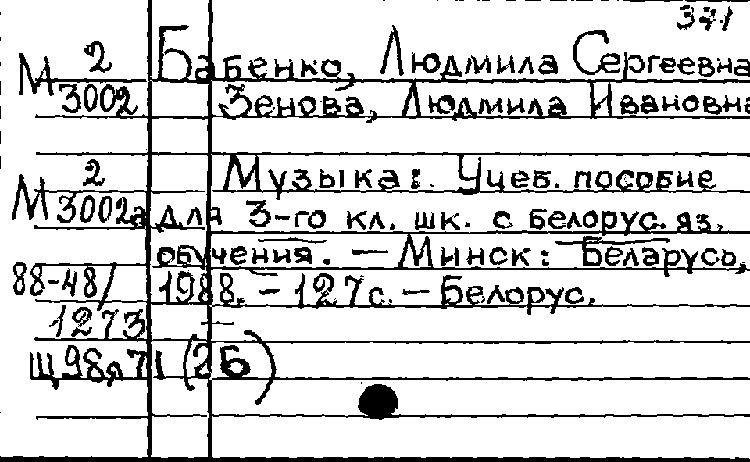 371
М 2/3002 Бабенко, Людмила Сергеевна
Зенова, Людмила Ивановна
М 2/3002а Музыка: Учеб. пособие
для 3-го кл. шк. с белорус. яз.
обучения. — Минск: Беларусь,
88-48/1273 1988. — 127 с. — Белорус.
Щ98я71(2Б)